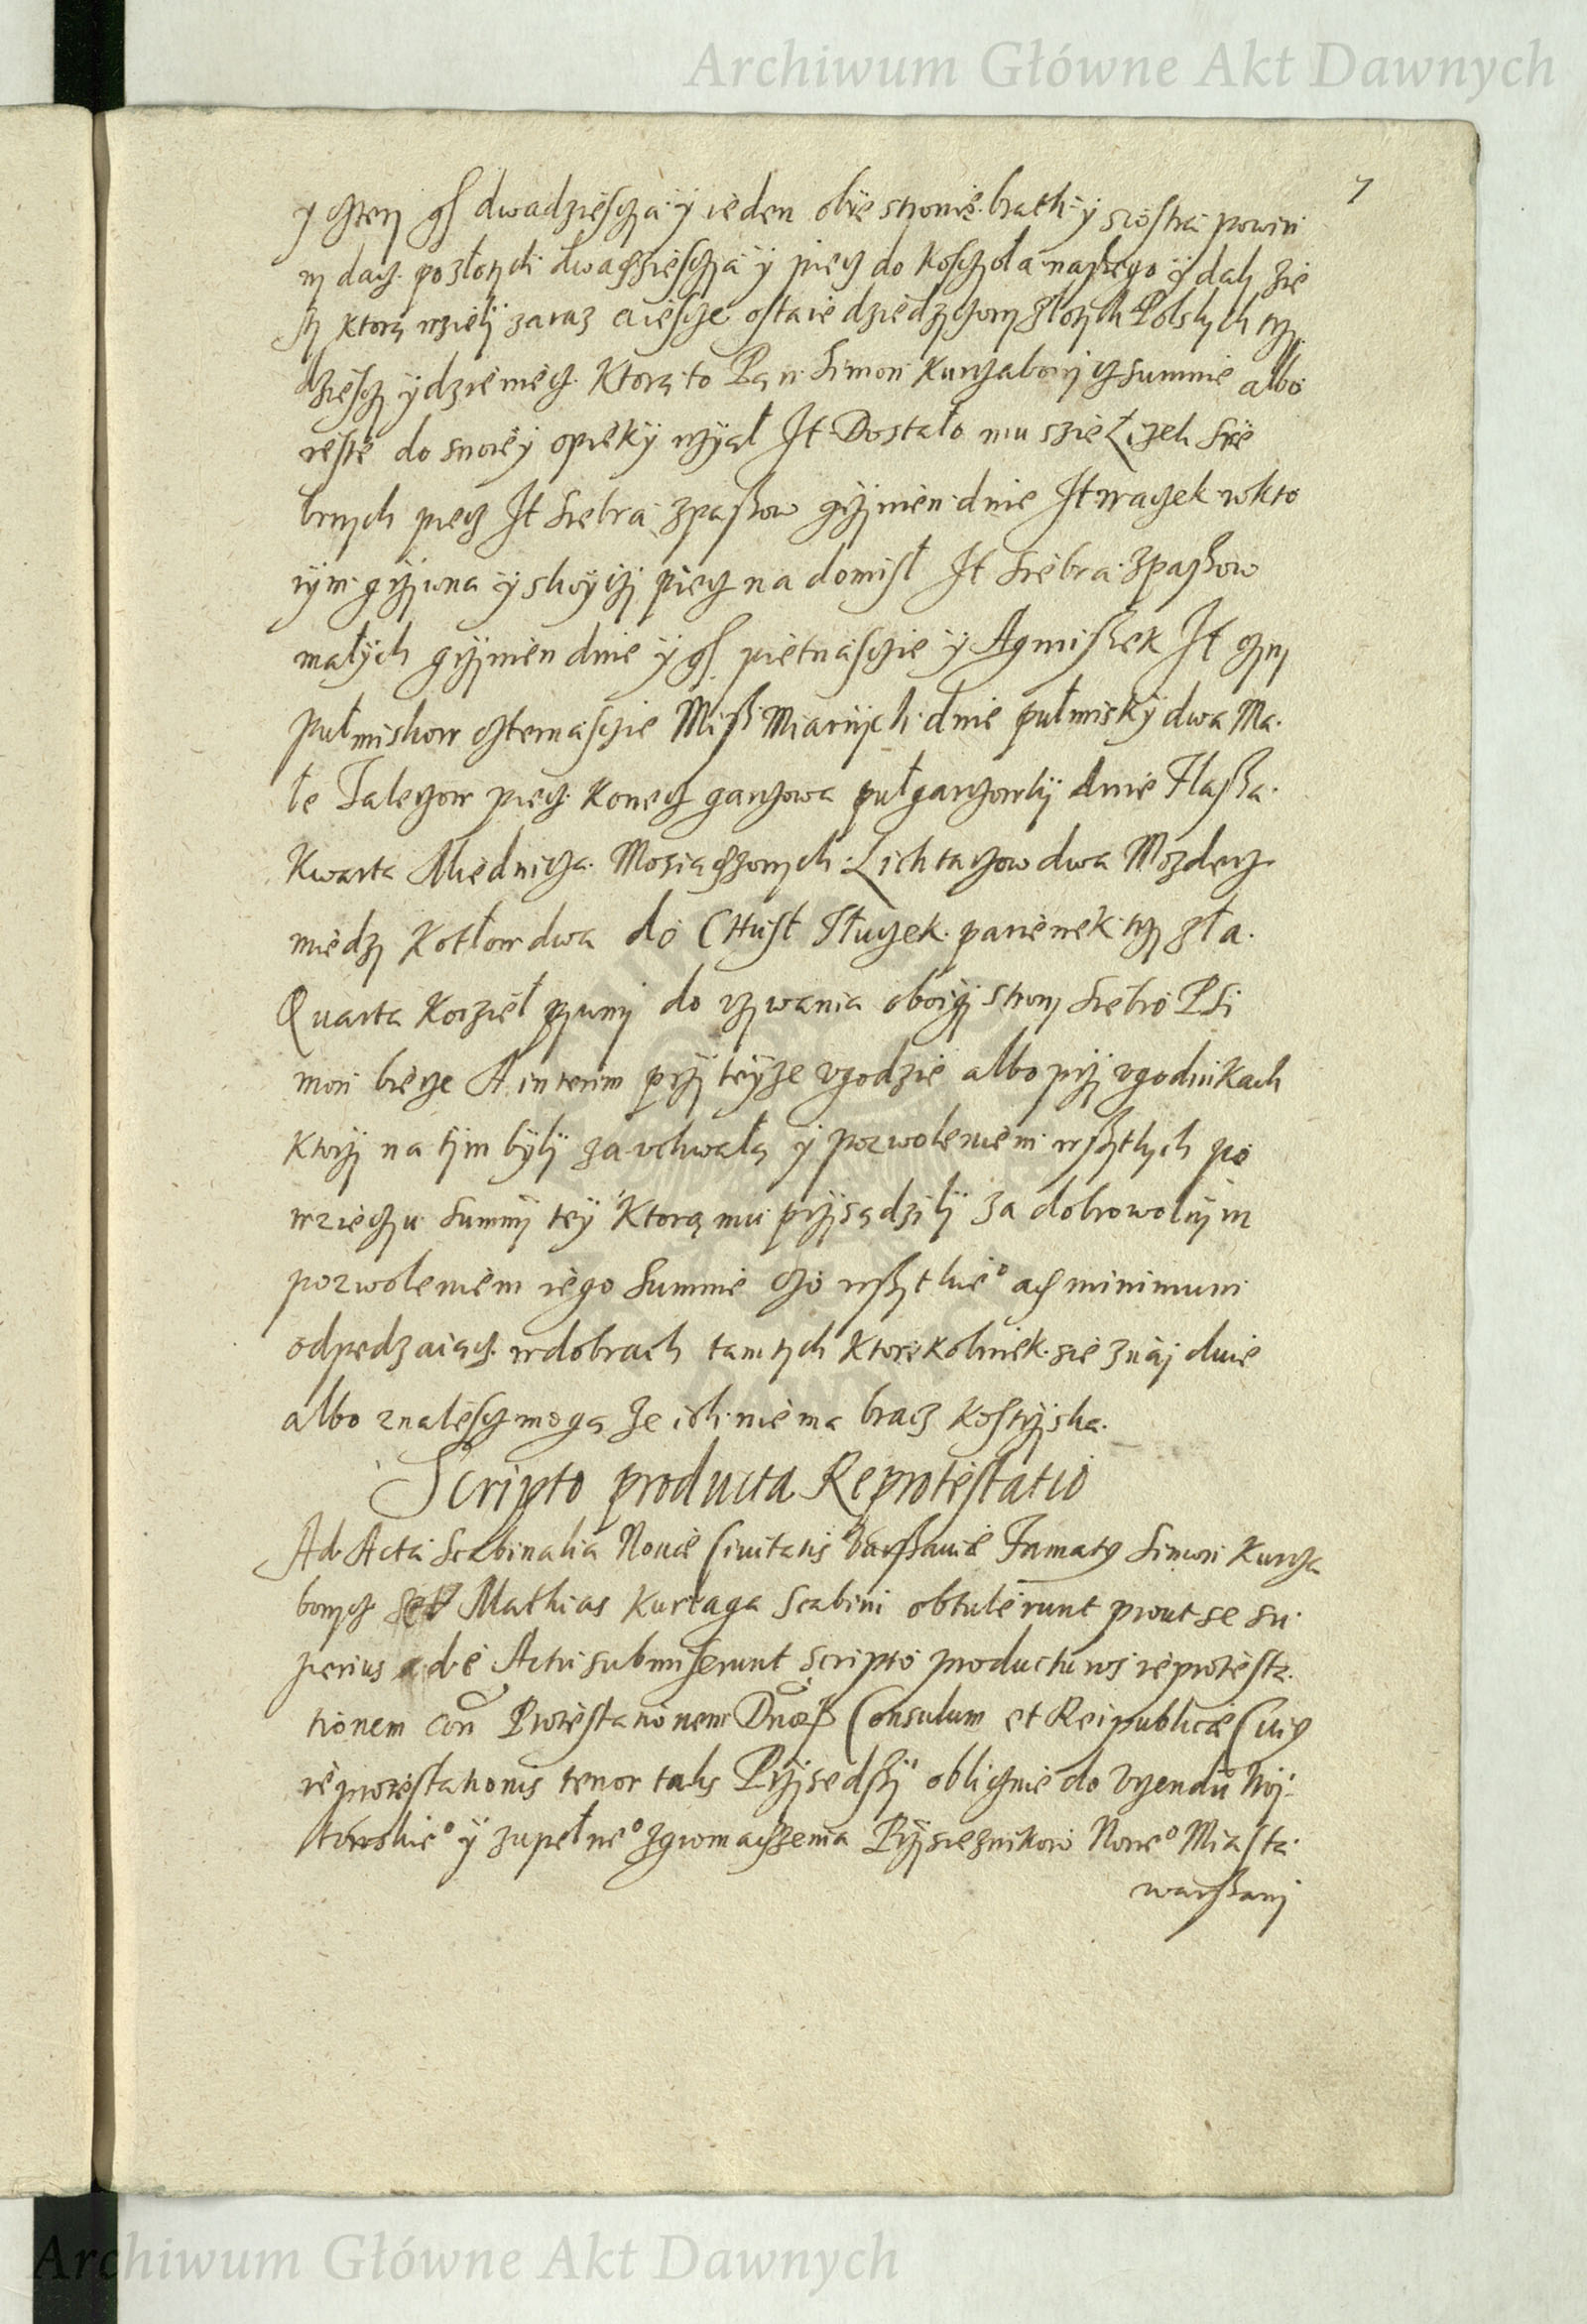 Archiwum Główne Akt Dawnych
7
y cztery gṡ dwadziescza y ieden obie stronie brath y siostra powin
ny dacz po złotych dwadziescza y piecz do kosczoła naszego y dali zie
ktorą wzięly zaraz a iescze ostaie dziedzyczony złotych Polskych trzy
dziescy y dziewiecz Ktorą to Pan Simon Kurczabowicz summie albo
reste do swoiey opieky wział It Dostało mu szie Lizek Sre
brnych piecz It Srebra z passow grziwien dwie It waczek w kto
rym grziwna y skoyczy piecz na domisł It Srebra z passow
małych grziwien dwie y gṡ pietnasczie y Agnuszek It czyny
pułmiskow czternasczie Miß Miarnych dwie pułmisky dwa Ma
łe Talerzow piecz Konecz garczowa pułgarczowky dwie Flaßa
Kwarta Miednicza Mosiadzowych Lichtarzow dwa Mozdzerz
miedzy Kotłow dwa do Chust Tłuczek panienek trzy zła
Quarta Korziel czyny do vzywania oboiey strony Srebro P Si
mon bierze A interim przy teyze vgodzie albo przy vgodnikach
Ktorzy na tym byly za vchwałą y pozwoleniem wßytkych po
wzieczu summy tey Ktorą mu przysądzily za dobrowolnym
pozwoleniem iego Summie czo wßytkie° ad minimum
odpedzaiącz w dobrach tamtych Ktorekolwiek sie znajduie
albo znalescz mogą ze ich nie ma bracz Kostrzyska
Scripto producta Reprotestatio
Ad Acta Scabinalia Nouæ Ciuitatis Varßauiæ Famaty Simon Kurcza
bowycz et Mathias Kurtaga Scabini obtulerunt prout se su
perius de Actu submiserunt scripto producturos reprotesta
tionem con Protestationem Dnoꝝ Consulum et Reipublicæ Cuiꝰ
reprotestationis tenor talis Przyszedßy oblicznie do Vrzendu Woj
towskie° y zupełne° zgromadzenia Przysieznikow Nowe° Miasta
warßawy
Archiwum Główne Akt Dawnych